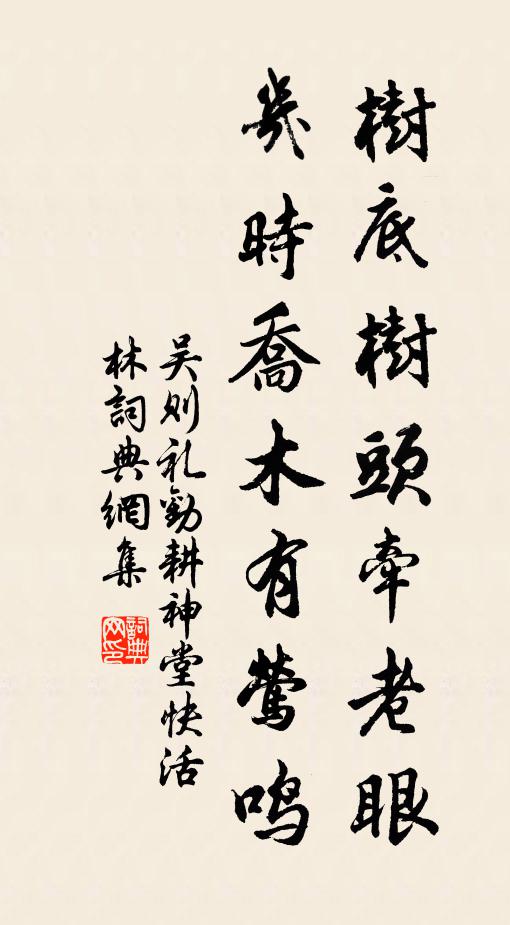 樹底樹頭牽老眼
幾時喬木有鶯鳴
吴则礼勸耕神堂快活
林詞典網集
詞典
网印